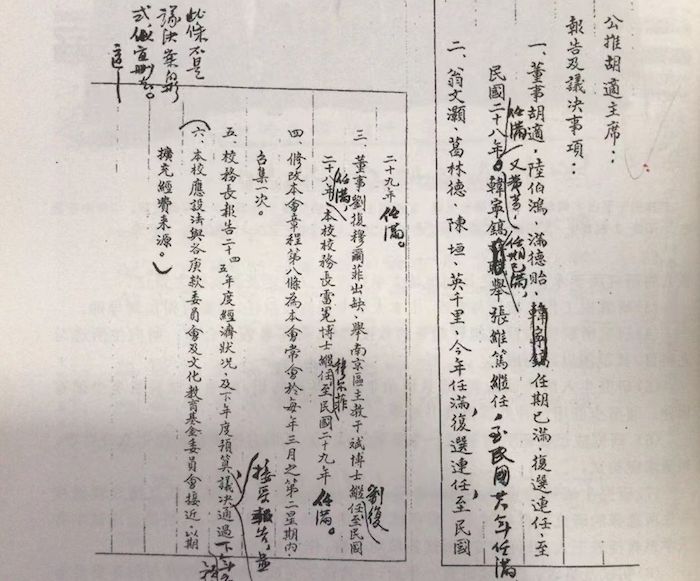 公推胡適主席：
報告及議決事項：
一、董事胡適，陸伯鴻，滿德貽，韓寧鎬任期已滿，復選連任，至
民國二十八年任滿，又董事，韓寧鎬任期已滿，舉張維篤繼任，至民國廿八年任滿
二、翁文灝、葛林德、陳垣、英千里，今年任滿，復選連任，至民國
二十九年任滿。
三、董事劉復穆爾菲出缺，舉南京區主教于斌博士繼任劉復至民國
二十八年任滿，本校校務長雷冕博士繼任穆爾菲至民國二十九年任滿。
四、修改本會章程第八條為本會常會於每年三月之第二星期內
召集一次。
五、校務長報告二十四五年度經濟狀況，及下年度預算議決通過
接受報告，並
六、本校應設法與各庚款委員會及文化教育基金委員會接近，以期
擴充經費來源。
此條不是
議決案的形
式，似宜刪去。